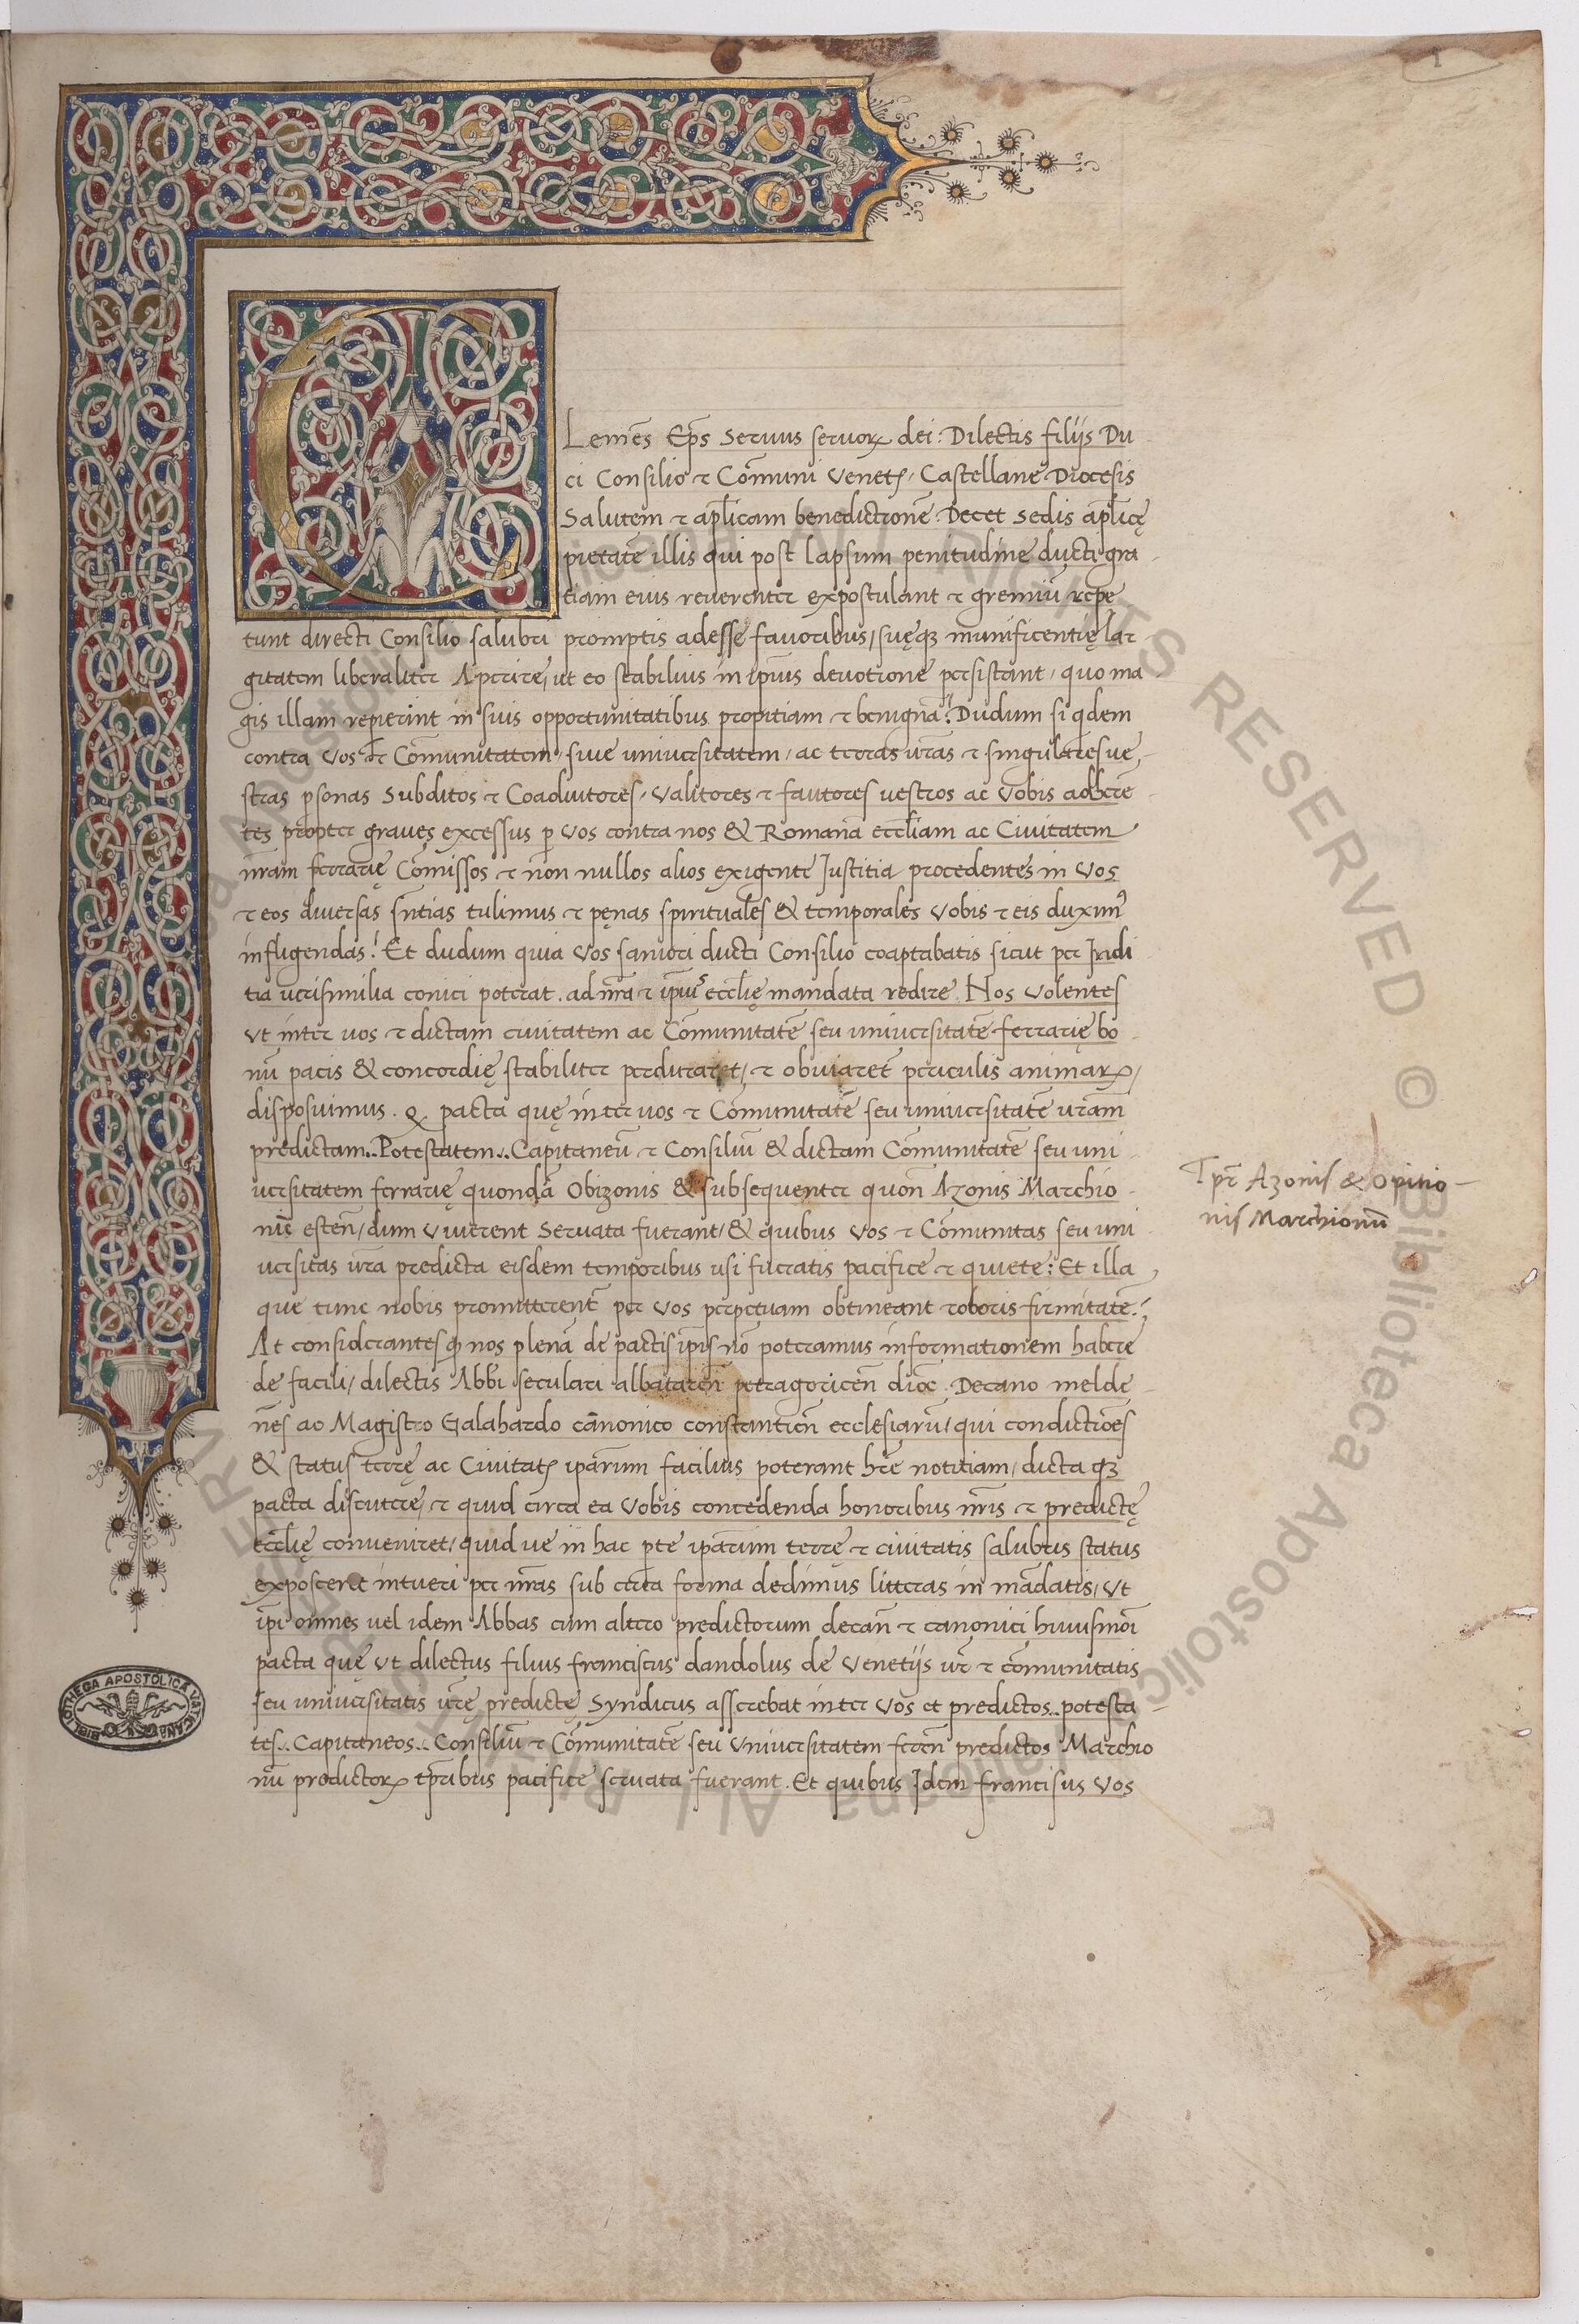 1
CLemēs Ep̄s Seruus seruoꝝ dei: Dilectis filijs Du
ci Consilio ⁊ Cōmuni Venetꝭ, Castellane Diocesis
Salutem ⁊ apl̄icam benedictionē. Decet Sedis apl̄icę
pietatē illis qui post lapsum penitudine ducti gra
tiam eius reuerenter expostulant ⁊ gremiū repe
tunt directi Consilio salubri promptis adesse fauoribus, suęqꝫ munificentię lar
gitatem liberaliter Aperire, ut eo stabilius in ip̄ius deuotione persistant, quo ma
gis illam reperierint in suis opportunitatibus propitiam ⁊ benignā: Dudum si qdem
contra vos ⁊ Cōmunitatem, siue uniuersitatem, ac terras ur̄as ⁊ singulares ue
stras p̱sonas Subditos ⁊ Coadiutores, Valitores ⁊ fautores uestros ac Vobis adherē
tes propter graues excessus ꝑ Vos contra nos & Romanā eccl̄iam ac Ciuitatem
nr̄am ferrarię Cōmissos ⁊ non nullos alios exigente Justitia procedentes in Vos
⁊ eos diuersas sn̄tias tulimus ⁊ pęnas spirituales & temporales Vobis ⁊ eis duximꝰ
infligendas! Et dudum quia Vos saniori ducti Consilio coaptabatis sicut per Indi
tia uerisimilia conici poterat. ad nr̄a ⁊ ip̄iuꝰ eccl̄ię mandata redire. Nos Volentes
Vt inter uos ⁊ dictam ciuitatem ac Cōmunitatē seu uniuersitatē ferrarię bo
nū pacis & concordię stabiliter perduraret, ⁊ obuiaret̄ periculis animaꝝ,
disposuimus. ꝙ pacta quę inter uos ⁊ Cōmunitatē seu uniuersitatē ur̄am
predictam.. Potestatem.. Capitaneū ⁊ Consiliū & dictam Cōmunitatē seu uni
uersitatem ferrarię quondā Obizonis & subsequenter quon̄ Azonis Marchio
nis esten̄, dum Viuerent Seruata fuerant, & quibus Vos ⁊ Cōmunitas seu uni
uersitas ur̄a predicta eisdem temporibus usi fueratis pacifice ⁊ quiete: Et illa
que tunc nobis promitterent̄ per Vos perpetuam obtineant roboris firmitatē:
At considerantes ꝙ nos plenā de pactis ip̄is nō poteramus informationem habere
de facili, dilectis Abb̄i seculari albataren̄ petragoricen̄ dioc̄. Decano melde
n̄es ac Magistro Galahardo cānonico constantien̄ ecclesiarū, qui condictiōes
& status terrę ac Ciuitatꝭ ip̄arum facilius poterant hr̄e notitiam, dicta qꝫ
pacta discutere, ⁊ quid circa ea Vobis concedenda honoribus nr̄is ⁊ predictę
eccl̄ię conueniret, quid ue in hac ꝑte ip̄arum terrę ⁊ ciuitatis salubris status
exposceret intueri per nr̄as sub certa forma dedimus litteras in mādatis, Vt
ip̄i omnes uel idem Abbas cum altero predictorum decan̄ ⁊ canonici huiusmōi
pacta que Vt dilectus filius franciscus dandolus de Venetijs ur̄ ⁊ cōmunitatis
seu uniuersitatis ur̄e predicte Syndicus asserebat inter Vos et predictos.. potesta
tes.. Capitaneos.. Consiliū ⁊ Cōmunitatē seu Vniuersitatem feren̄ predictos Marchio
nū predictoꝝ tp̄ribus pacifice seruata fuerant. Et quibus Idem francisus Vos
Tp̄r Azonis & Opitio
nis Marchionū
BIBLIOTHECA APOSTOLICA VATICANA
Biblioteca Apostolica Vaticana ALL RIGHTS RESERVED ©